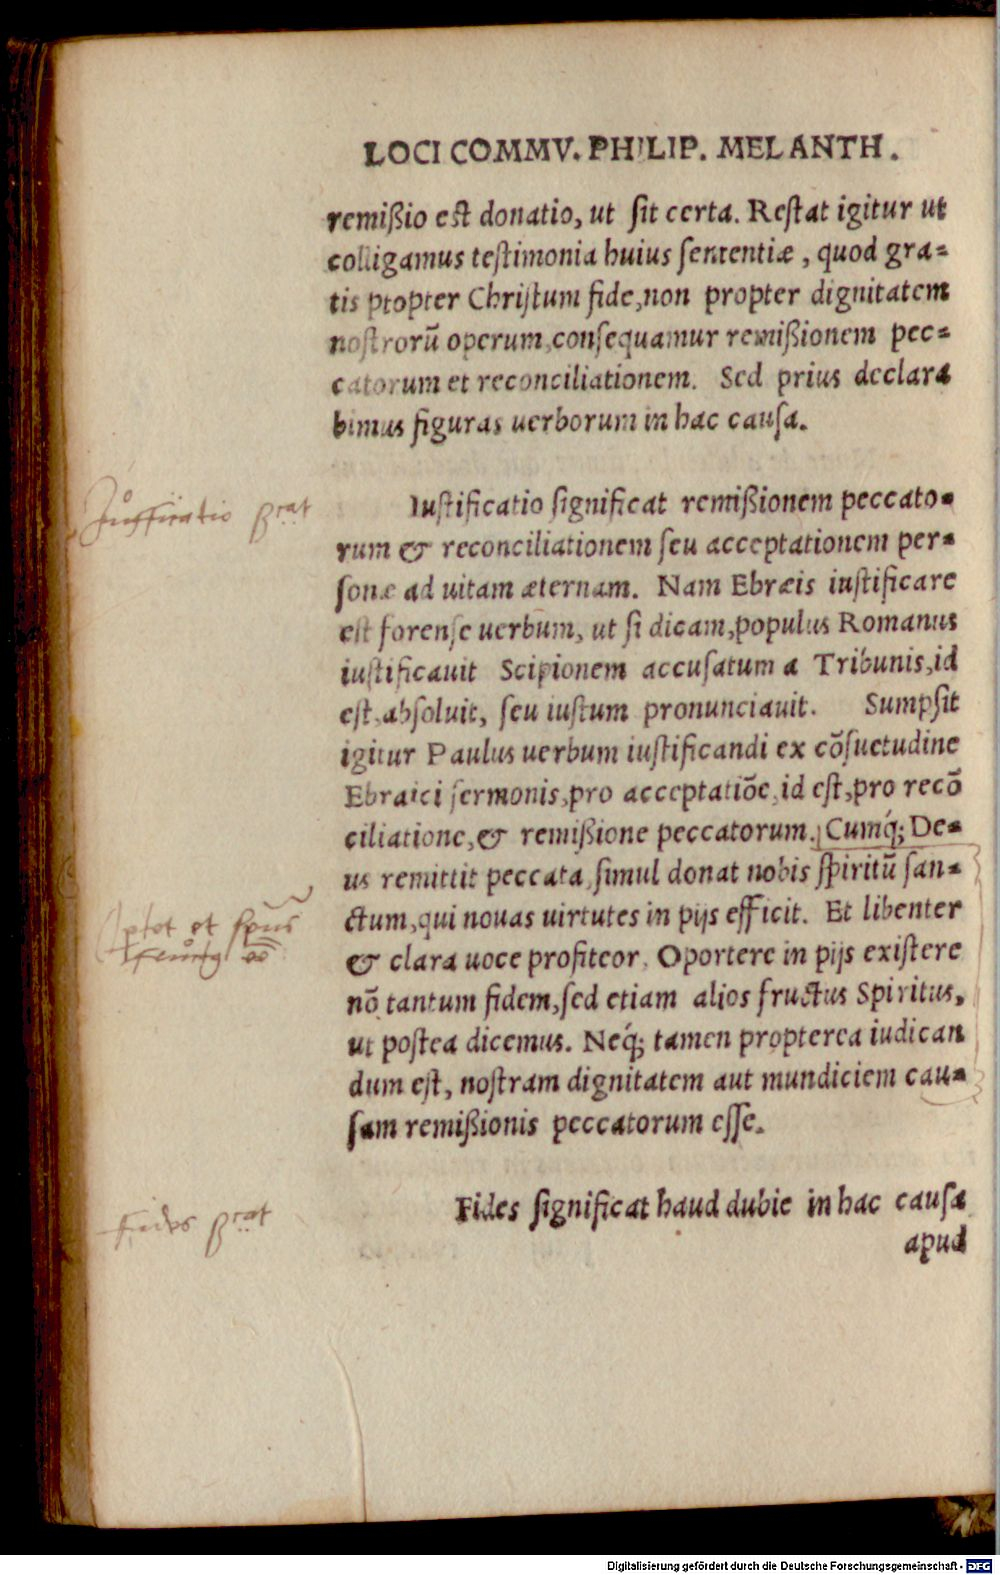 LOCI COMMV. PHILIP. MELANTH.
remißio est donatio, ut ſit certa. Reſtat igitur ut
colligamus teſtimonia huius ſententiæ, quod gra-
tis propter Chriſtum fide, non propter dignitatem
noſtrorũ operum, conſequamur remißionem pec-
catorum et reconciliationem. Sed prius declara
bimus figuras uerborum in hac cauſa.
Iuſtificatio ſignificat remißionem peccato-
rum & reconciliationem ſeu acceptationem per-
ſonæ ad uitam æternam. Nam Ebræis iuſtificare
est forenſe uerbum, ut ſi dicam, populus Romanus
iuſtificauit Scipionem accuſatum a Tribunis, id
eſt, abſoluit, ſeu iuſtum pronunciauit. Sumpſit
igitur Paulus uerbum iuſtificandi ex cõſuetudine
Ebraici ſermonis, pro acceptatiõe, id eſt, pro recõ
ciliatione, & remißione peccatorum. Cumq́; De-
us remittit peccata, ſimul donat nobis ſpiritũ ſan-
ctum, qui nouas uirtutes in pijs efficit. Et libenter
& clara uoce profiteor, Oportere in pijs exiſtere
nõ tantum fidem, ſed etiam alios fructus Spiritus,
ut poſtea dicemus. Neq́; tamen propterea iudican
dum eſt, noſtram dignitatem aut mundiciem cau-
ſam remißionis peccatorum eſſe.
Fides ſignificat haud dubie in hac cauſa
apud
Digitalisierung gefördert durch die Deutsche Forschungsgemeinschaft - DFG